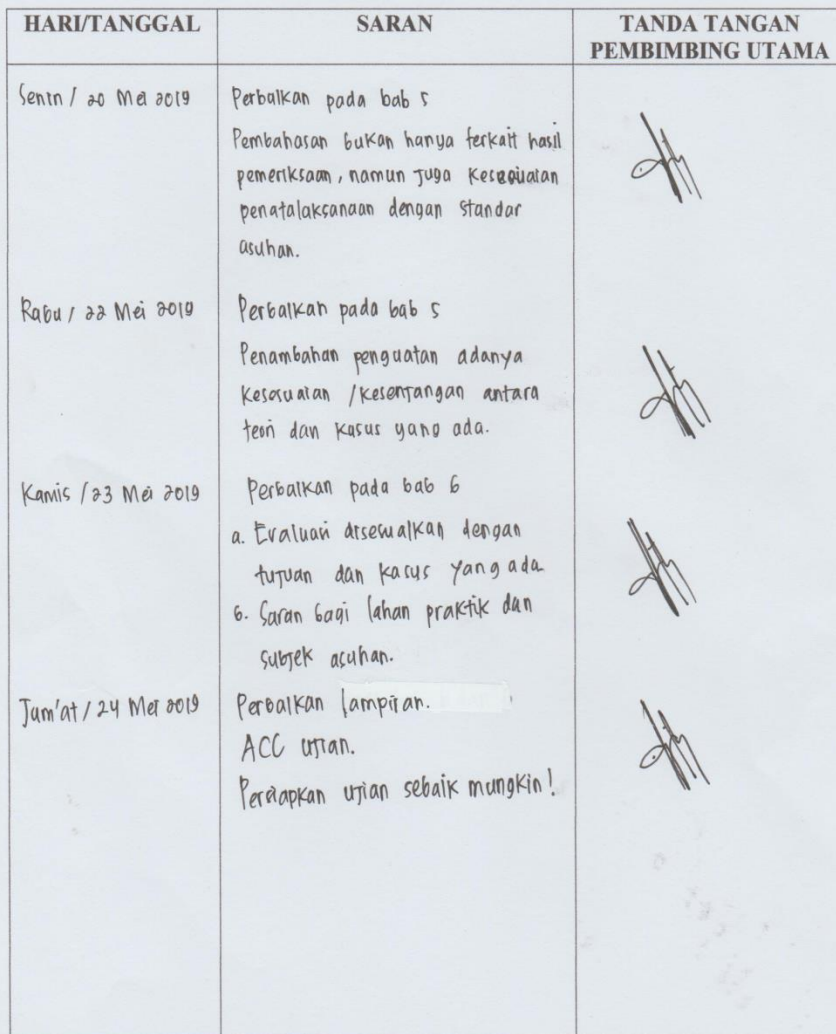 HARI/TANGGAL SARAN TANDA TANGAN
PEMBIMBING UTAMA
Senin / 20 Mei 2019 Perbaikan pada bab 5
Pembahasan bukan hanya terkait hasil
pemeriksaan, namun juga kesesuaian
penatalaksanaan dengan standar
asuhan.
Rabu / 22 Mei 2019 Perbaikan pada bab 5
Penambahan penguatan adanya
kesesuaian / kesenjangan antara
teori dan kasus yang ada.
Kamis / 23 Mei 2019 Perbaikan pada bab 6
a. Evaluasi disesuaikan dengan
tujuan dan kasus yang ada
b. Saran bagi lahan praktik dan
subjek asuhan.
Jum'at / 24 Mei 2019 Perbaikan lampiran.
ACC ujian.
Persiapkan ujian sebaik mungkin!